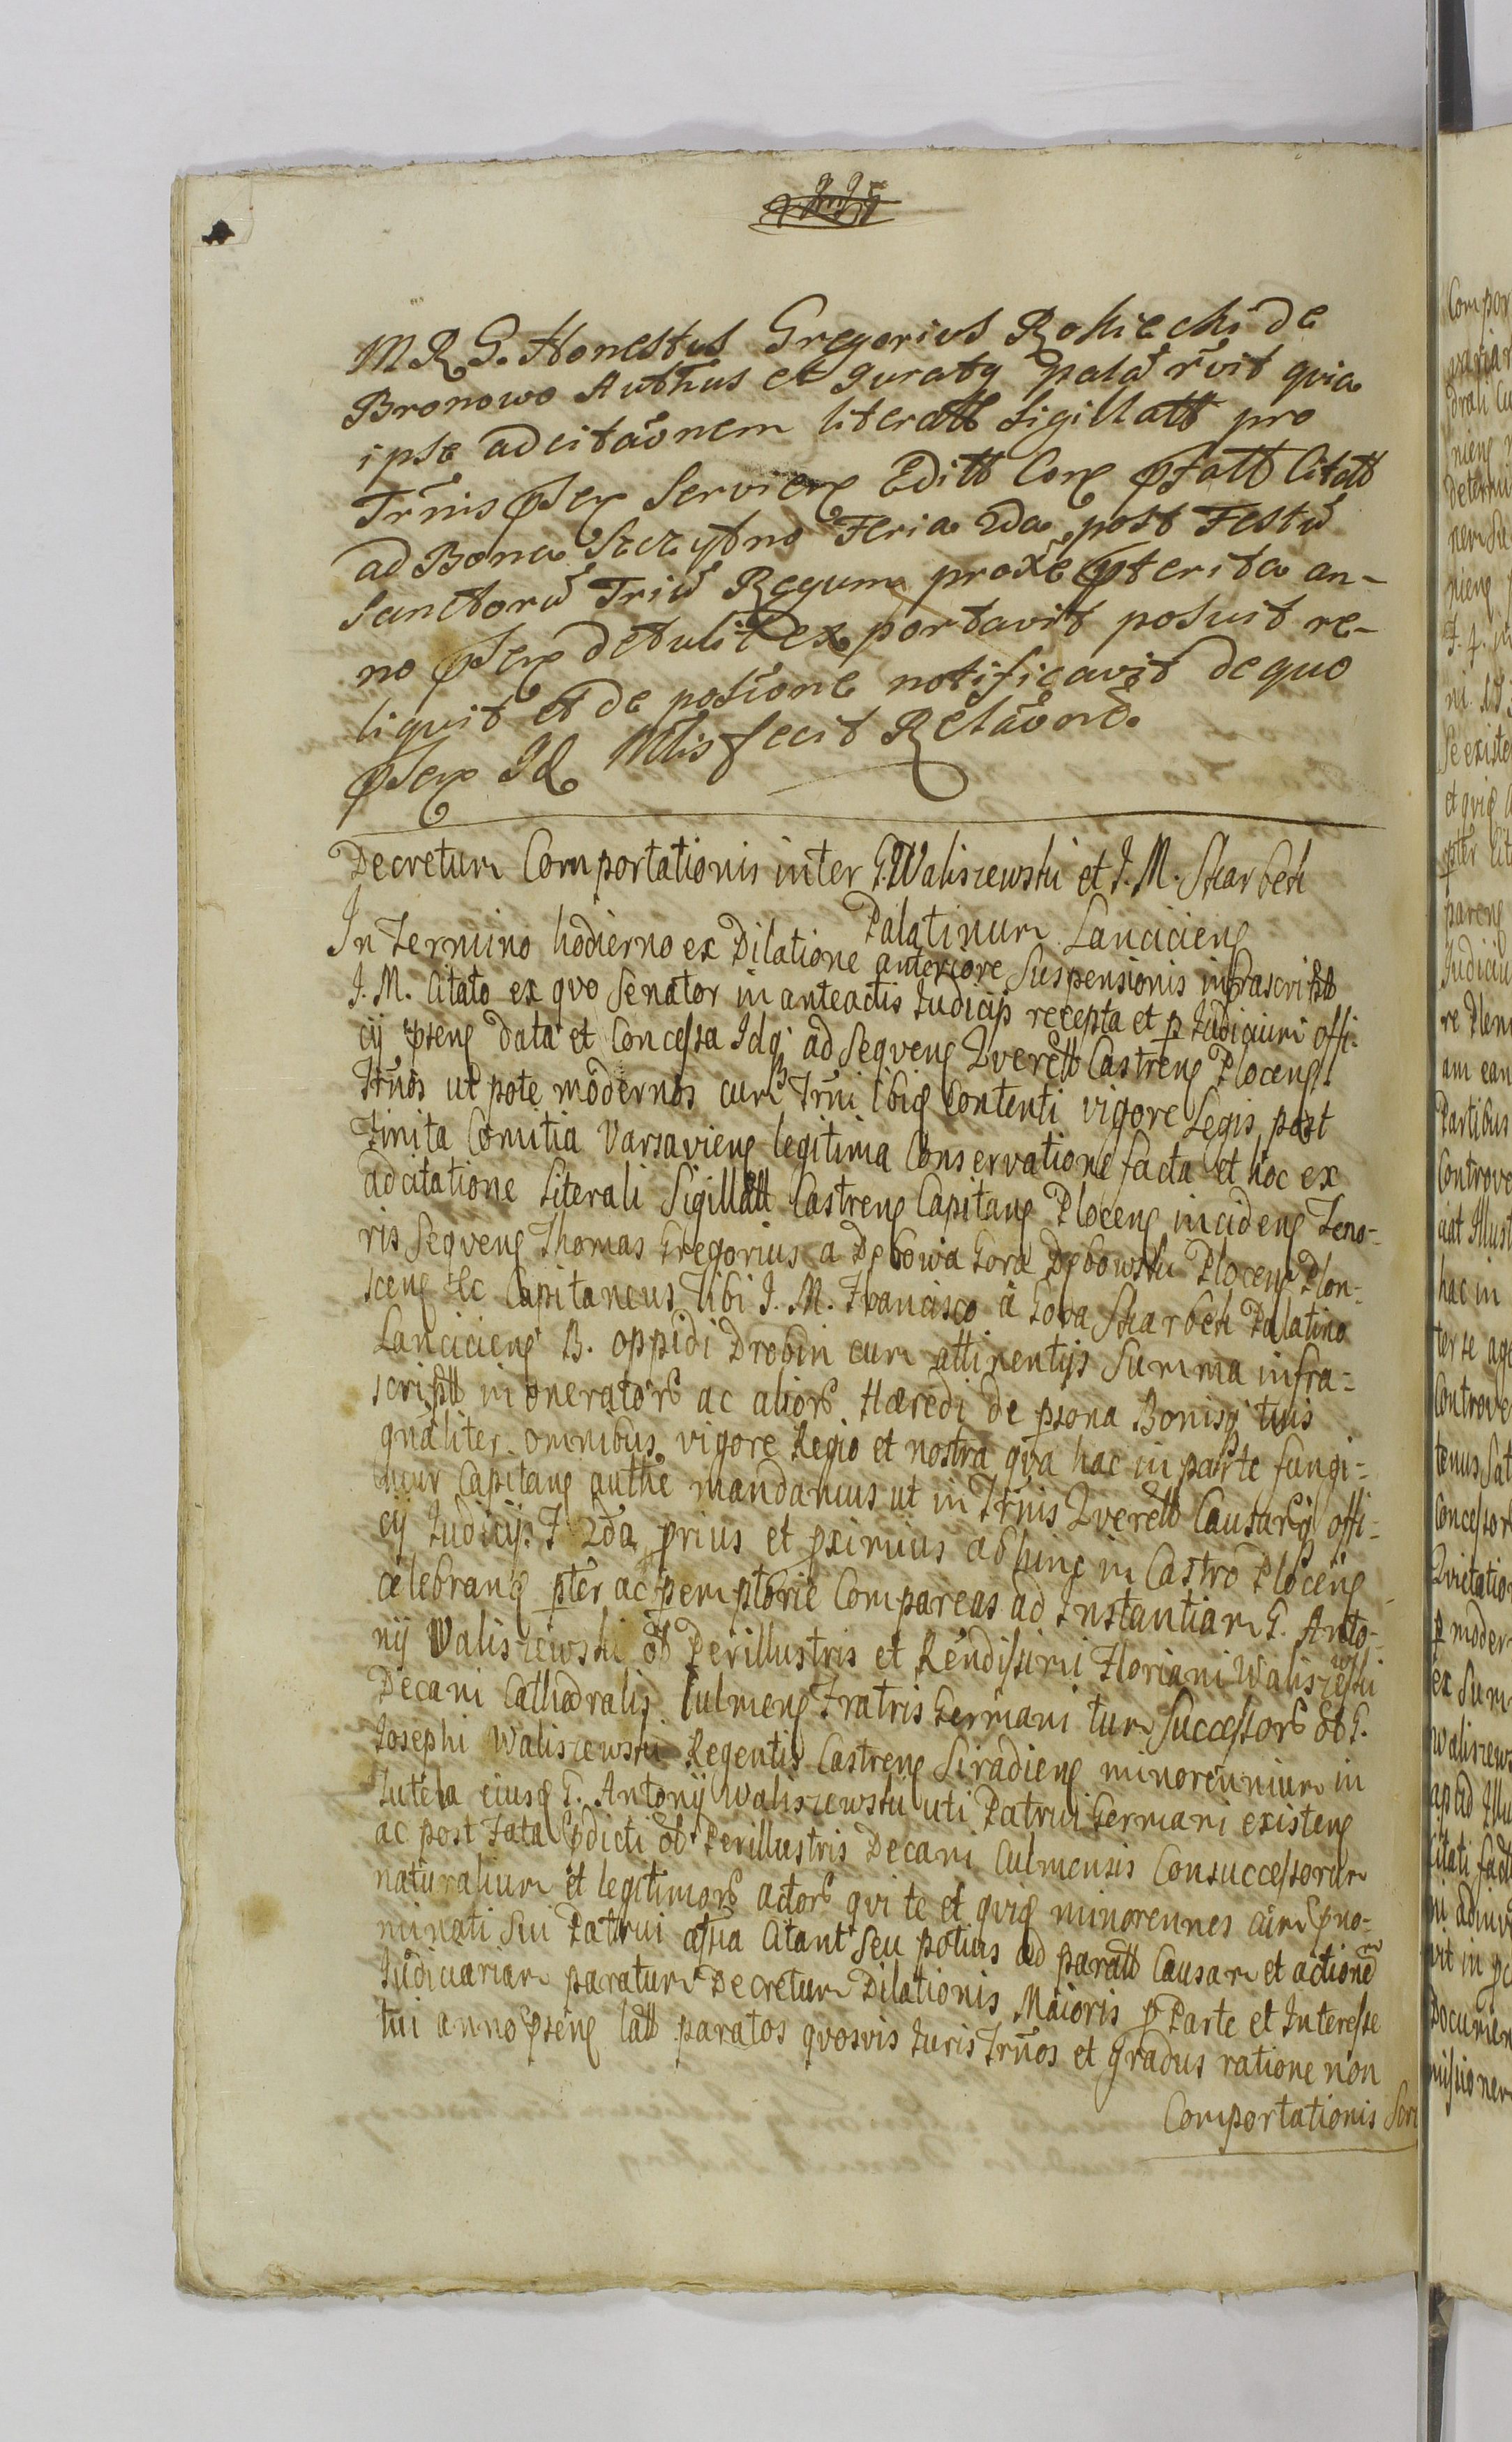 M R G. Honestus Gregorius Rokicki de
Bronowo Authūs et Juratꝯ palā r̃vit qvia
ipse adcitãonem literaℓℓ Sigillaℓℓ pro
Tr̃nis p̃sen Servien Ediℓℓ Cor p̃faℓℓ Citaℓℓ
ad Bona Szczytno Feria 2da post Festũ
Sanctorũ Triũ Regum proxe p̃terita an-
no p̃sen detulit exportavit posuit re-
liquit et de posĩone notificavit de quo
p̃sen Id Mlis fecit Relãone.
Decretum Comportationis inter G. Waliszewski et J. M. Skarbek
Palatinum Lancicien
In Termino hodierno ex Dilatione anteriore Suspensionis infrascripℓℓ
J. M. Citato ex qvo Senator in anteactis Judicijs recepta et p Judicium offi-
cij p̃sens data et Concessa Idq ad Seqvens Qvereℓℓ Castrens Plocens
Tr̃nos ut pote modernos cum Tr̃ni ibid Contenti vigore Legis post
Finita Comitia Varsaviens legitima Conservatione facta et hoc ex
adcitatione Literali Sigillaℓℓ Castrens Capitans Plocens incidens Teno-
ris Seqvens Thomas Gregorius a Dębowa Gora Dębowski Plocens Plon-
scens &c Capitaneus Tibi J. M. Francisco à Gora Skarbek Palatino
Lanciciens B. oppidi Drobin cum attinentijs Summa infra-
scripℓℓ inoneratorũ ac aliorũ Hæredi de p̃sona Bonisq tuis
qñaliter omnibus vigore Regio et nostra qva hac in parte fungi-
mur Capitans authẽ mandamus ut in Tr̃nis Qvereℓℓ Causarũ offi-
cij Judicij F. 2da prius et p̃ximius adhinc in Castro Plocens
celebrans p̃ter ac p̃emptorie Compareas ad Instantiam G. Anto-
nij Waliszewski ol Perillustris et Rendissimi Floriani Waliszewski
Decani Cathedralis Culmens Fratris Germani tum Successorũ ol G.
Josephi Waliszewski Regentis Castrens Siradiens minorennium in
Tutela eiusd G. Antonij Waliszewski uti Patrui Germani existens
ac post Fata p̃dicti ol Perillustris Decani Culmensis Consuccessorum
naturalium et legitimorũ actorũ qvi te et qvid minorennes cum p̃no-
minati sui Patrui astia Citant seu potius ad paraℓℓ Causam et actionem
Judiciariam paratum Decretum Dilationis Maioris p Parte et Interesse
tui anno p̃sens laℓℓ paratos qvosvis Juris Tr̃nos et gradus ratione non
Comportationis